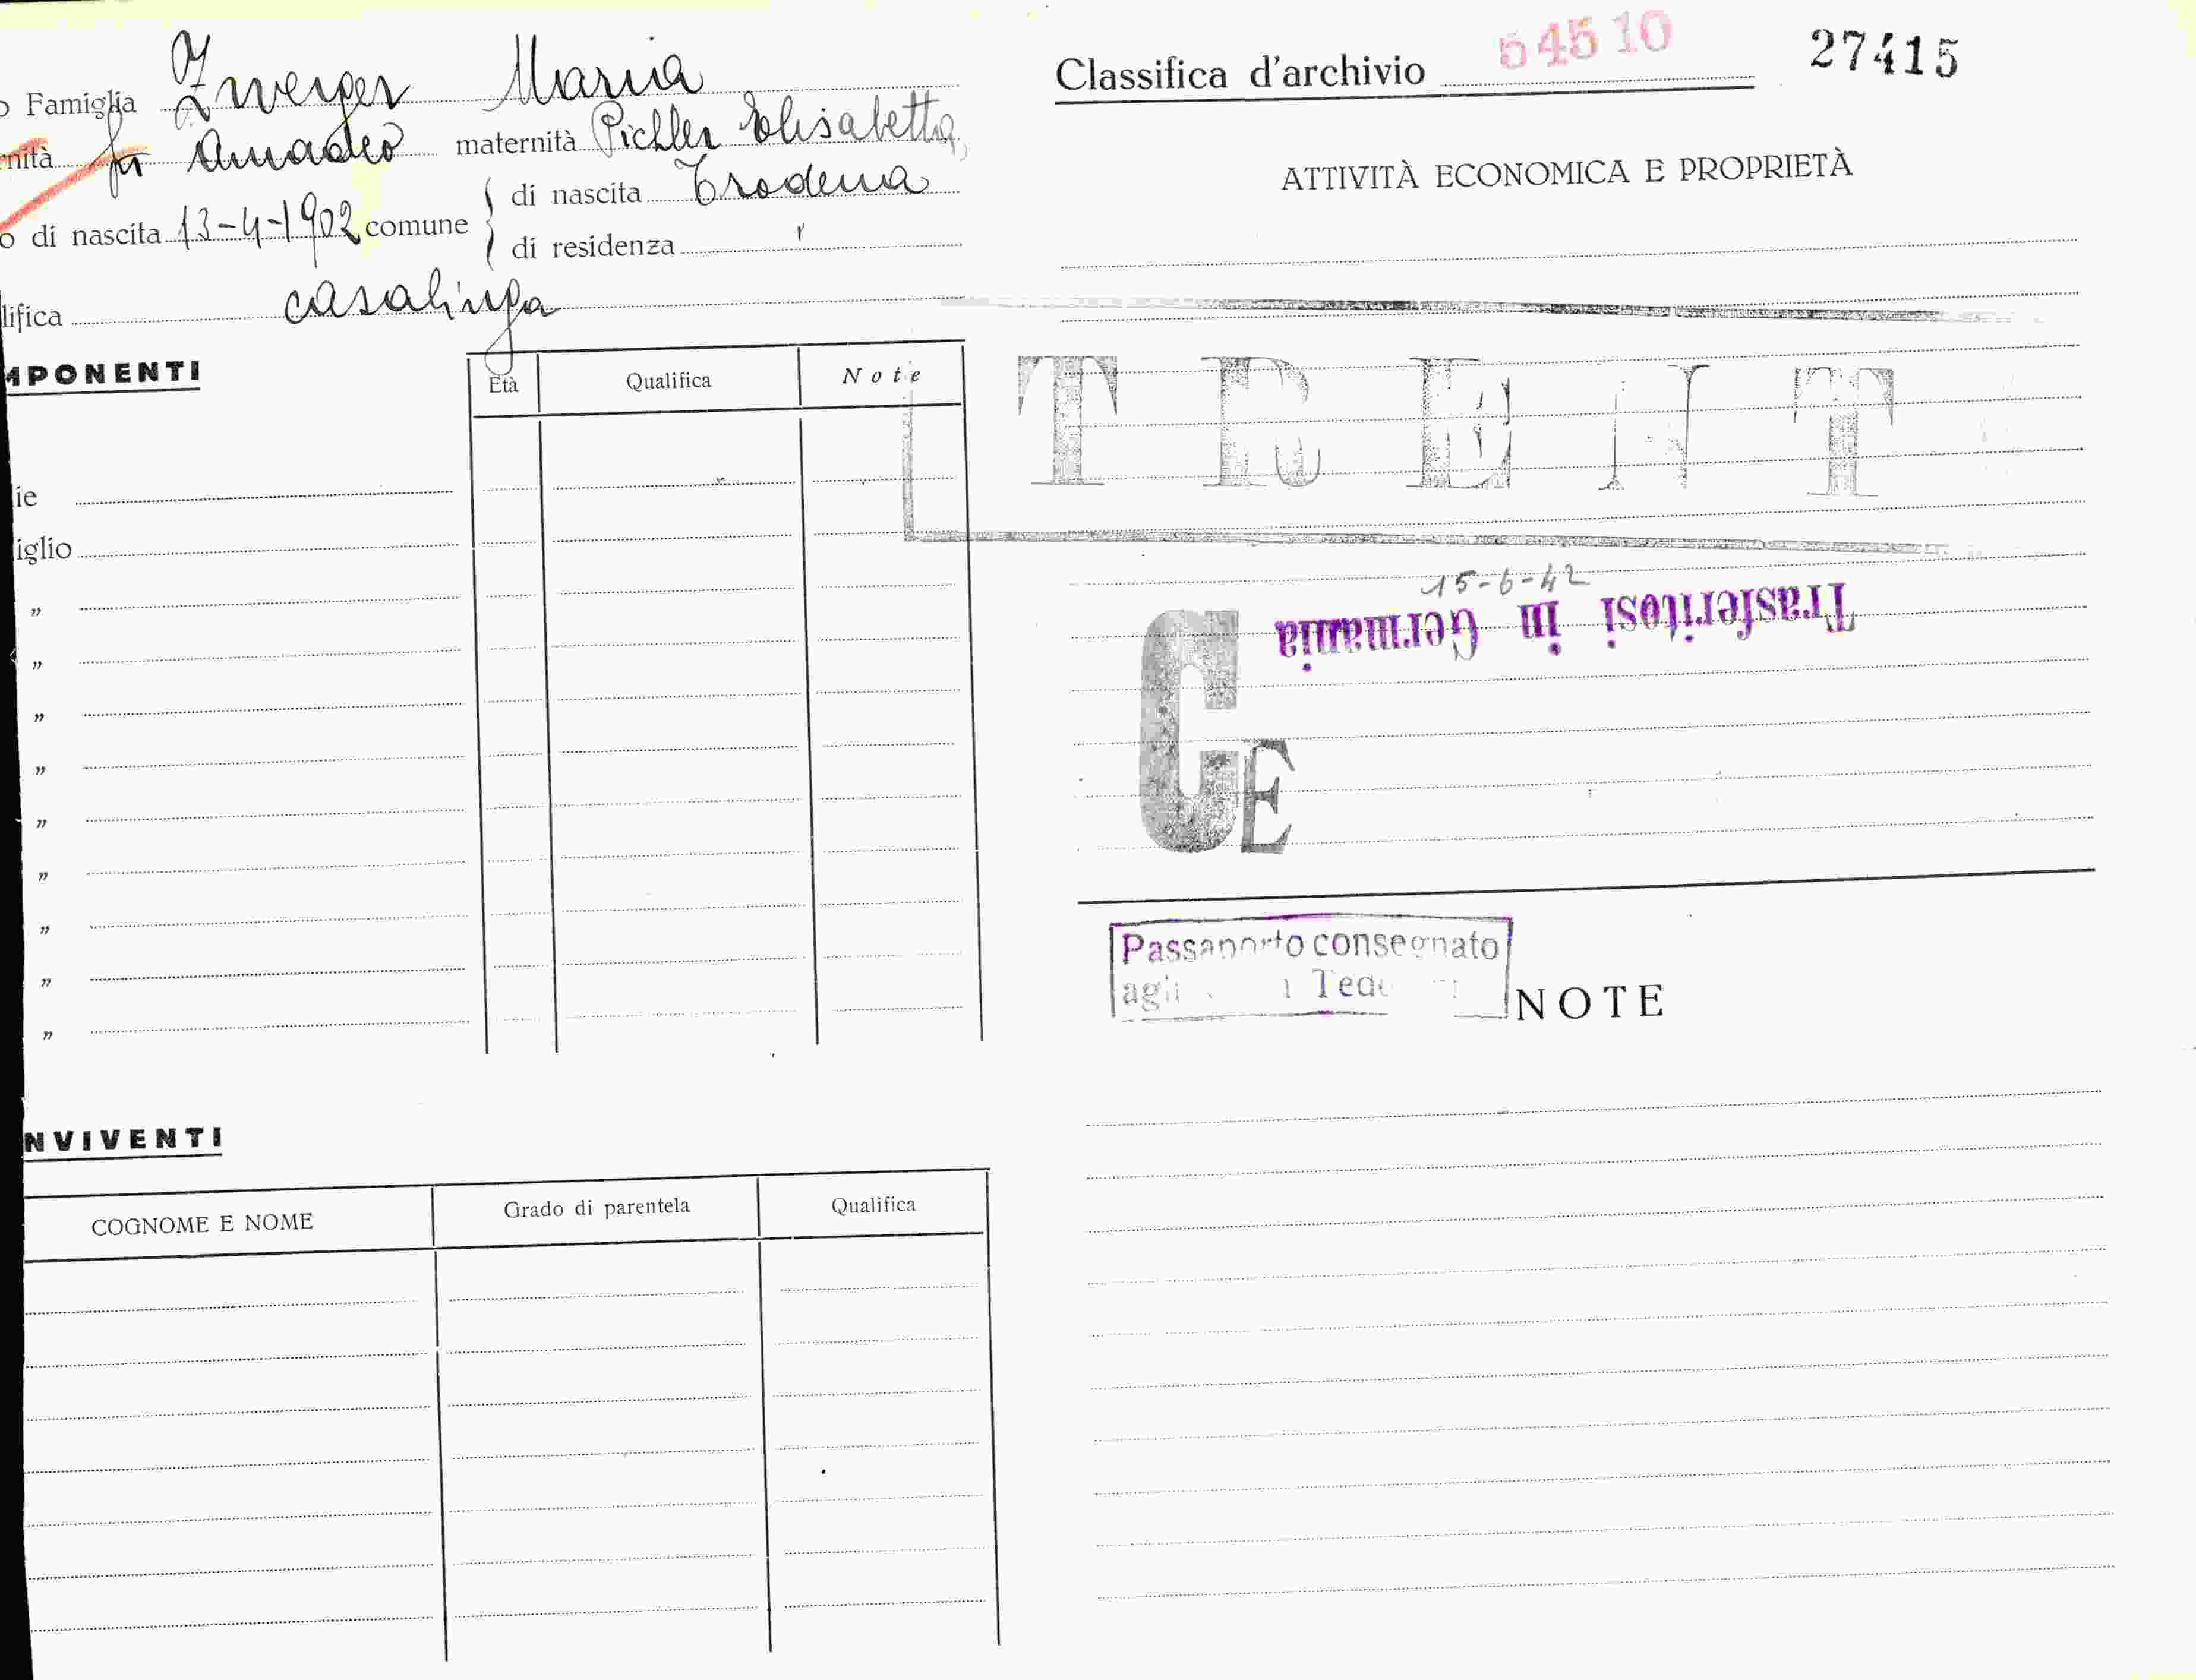 o Famiglia Zwerger Maria
rnità fu Amadeo maternità Pichler Elisabetta
o di nascita 13-4-1902 comune di nascita Trodena
di residenza "
lifica casalinga
MPONENTI
Età Qualifica Note
ie
iglio
"
"
"
"
"
"
"
"
"
NVIVENTI
COGNOME E NOME Grado di parentela Qualifica
Classifica d'archivio 54510 27415
ATTIVITÀ ECONOMICA E PROPRIETÀ
15-6-42
Trasferitosi in Germania
G
E
Passaporto consegnato
NOTE